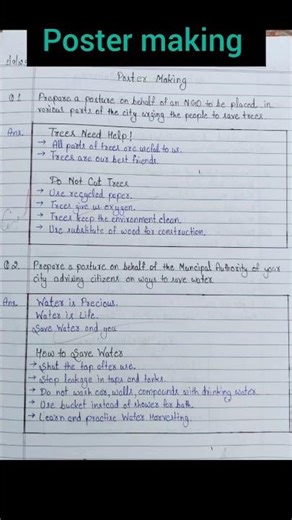 Poster making
Poster Making
Q.1 Prepare a posture on behalf of an NGO to be placed in
various parts of the city urging the people to save trees.
Ans. Trees Need Help!
→ All parts of trees are useful to us.
→ Trees are our best friends.
Do Not Cut Trees
→ Use recycled paper.
→ Trees give us oxygen.
→ Trees keep the environment clean.
→ Use substitute of wood for construction.
Q.2 Prepare a posture on behalf of the Muncipal Authority of your
city advising citizens on ways to save water
Ans. Water is Precious.
Water is Life.
Save Water and you
How to Save Water
→ Shut the tap after use.
→ Stop leakage in taps and tanks.
→ Do not wash car, walls, compounds with drinking water.
→ Use bucket instead of shower for bath.
→ Learn and practise Water Harvesting.